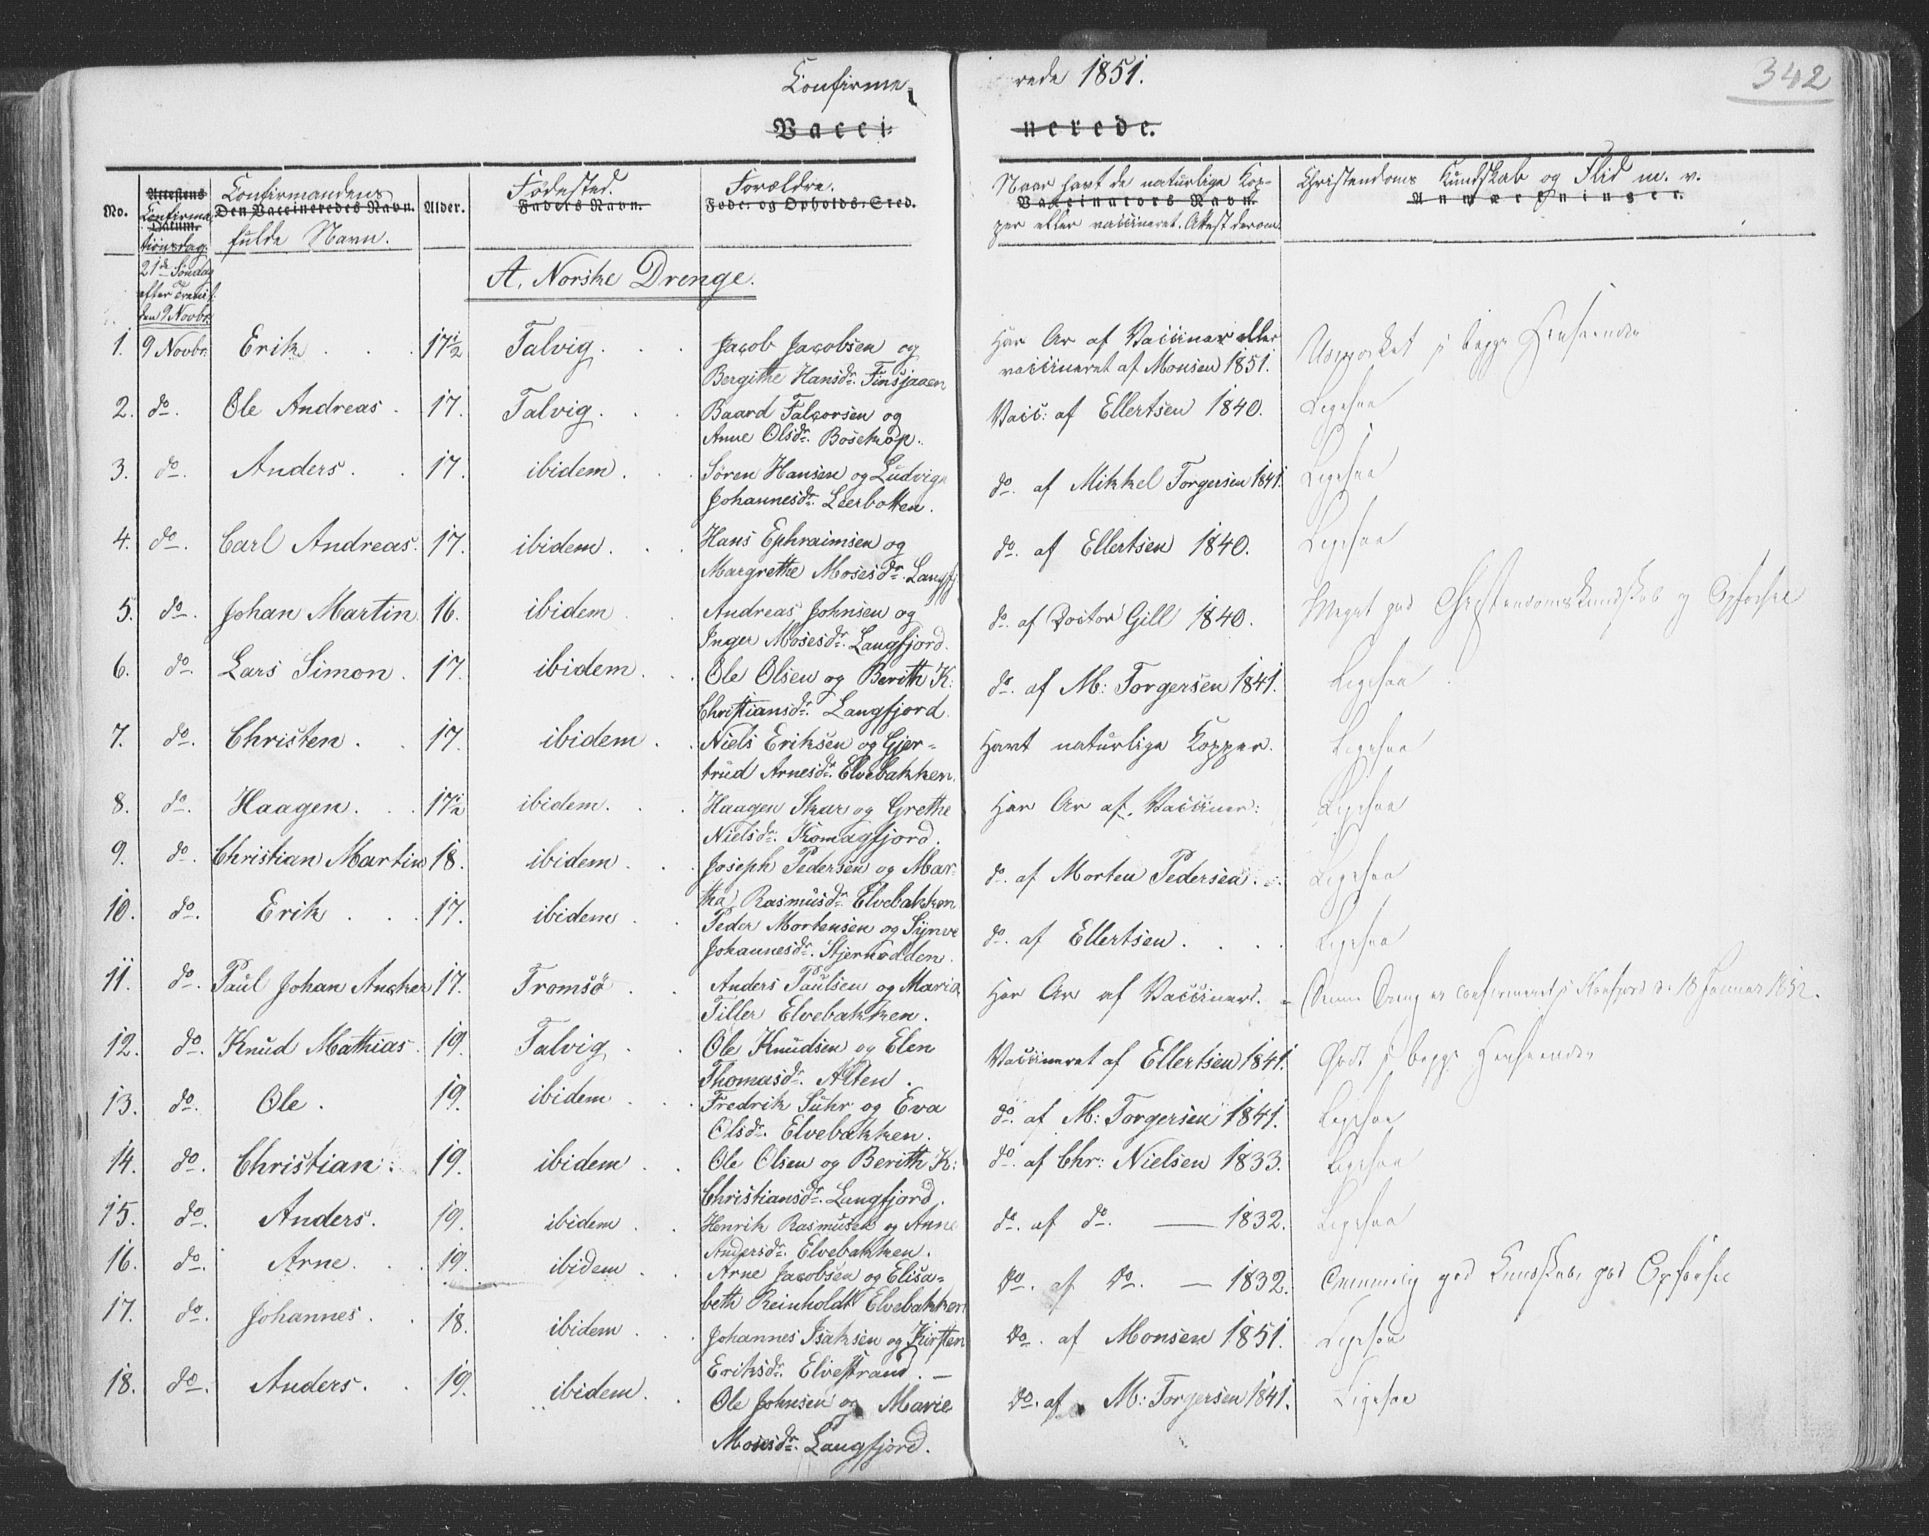 Confirme-
rede 1851.
342
Vacci-
nerede.
No.
Attestens Datum.
Confirmationsdag.
Den Vaccineredes Navn.
Confirmandens fulde Navn.
Alder.
Fødested.
Faders Navn.
Forældre.
Føde- og Opholds-Sted.
Naar havt de naturlige Kop-
Vaccinators Navn.
per eller vaccineret. Attest derom.
Christendoms Kundskab og Flid m. v.
Anmærkninger.
21de Søndag
efter Trinit.
den 9 Novbr.
A. Norske Drenge.
1. 9 Novbr. Erik 17 1/2 Talvig. Jacob Jacobsen og Har Ar af Vacciner eller Udmærket i begge Henseender
Bergithe Hansdr. Finsjaaen vaccineret af Monsen 1851.
2. do. Ole Andreas. 17. Talvig. Baard Falcorsen og Vacc: af Ellertsen 1840. Ligesaa
Anne Olsdr. Bosekop.
3. do. Anders. 17. ibidem. Søren Hansen og Ludvig do. af Mikkel Torgersen 1841. Ligesaa
Johannesdr. Leerbotten.
4. do. Carl Andreas. 17. ibidem. Hans Ephraimsen og do. af Ellertsen 1840. Ligesaa
Margrethe Mosesdr. Langfj
5. do. Johan Martin 16. ibidem. Andreas Johnsen og do. af Doctor Gill 1840. Meget god Christendomskundskab og Opførsel
Inger Mosesdr. Langfjord.
6. do. Lars Simon. 17. ibidem. Ole Olsen og Berith K: do. af M: Torgersen 1841. Ligesaa
Christiansdr. Langfjord.
7. do. Christen. 17. ibidem. Niels Eriksen og Gjer- Havt naturlige Kopper. Ligesaa
trud Arnesdr. Elvebakken.
8. do. Haagen. 17 1/2 ibidem. Haagen Skar og Grethe Har Ar af Vacciner: Ligesaa
Nielsdr. Komagfjord.
9. do. Christian Martin 18. ibidem. Joseph Pedersen og Mar- do. af Morten Pedersen. Ligesaa
tha Rasmusdr. Elvebakken
10. do. Erik 17. ibidem. Peder Mortensen og Synve do. af Ellertsen. Ligesaa
Johannesdr. Stjernodden.
11. do. Paul Johan Ancker 17. Tromsø. Anders Paulsen og Maria Har Ar af Vacciner. Denne Dreng er confirmeret i Kaafjord d. 18 Januar 1852.
Tiller Elvebakken.
12. do. Knud Mathias. 19. Talvig. Ole Knudsen og Elen Vaccineret af Ellertsen 1841. Godt i begge Henseender
Thomasdr. Alten.
13. do. Ole. 19. ibidem. Fredrik Suhr og Eva do. af M: Torgersen 1841. Ligesaa
Olsdr. Elvebakken.
14. do. Christian. 19. ibidem. Ole Olsen og Berith K: do. af Chr: Nielsen 1833. Ligesaa
Christiansdr. Langfjord.
15. do. Anders. 19. ibidem. Henrik Rasmusen og Anne do. af do. — 1832. Ligesaa
Andersdr. Elvebakken.
16. do. Arne. 19. ibidem. Arne Jacobsen og Elisa- do. af do. — 1832. Temmelig god Kundskab, god Opførsel
beth Reinholdt Elvebakken
17. do. Johannes. 18. ibidem. Johannes Isaksen og Kirsten do. af Monsen 1851. Ligesaa
Eriksdr. Elvestrand. —
18. do. Anders. 19. ibidem. Ole Johnsen og Marie do. af M: Torgersen 1841. Ligesaa
Mosesdr. Langfjord.